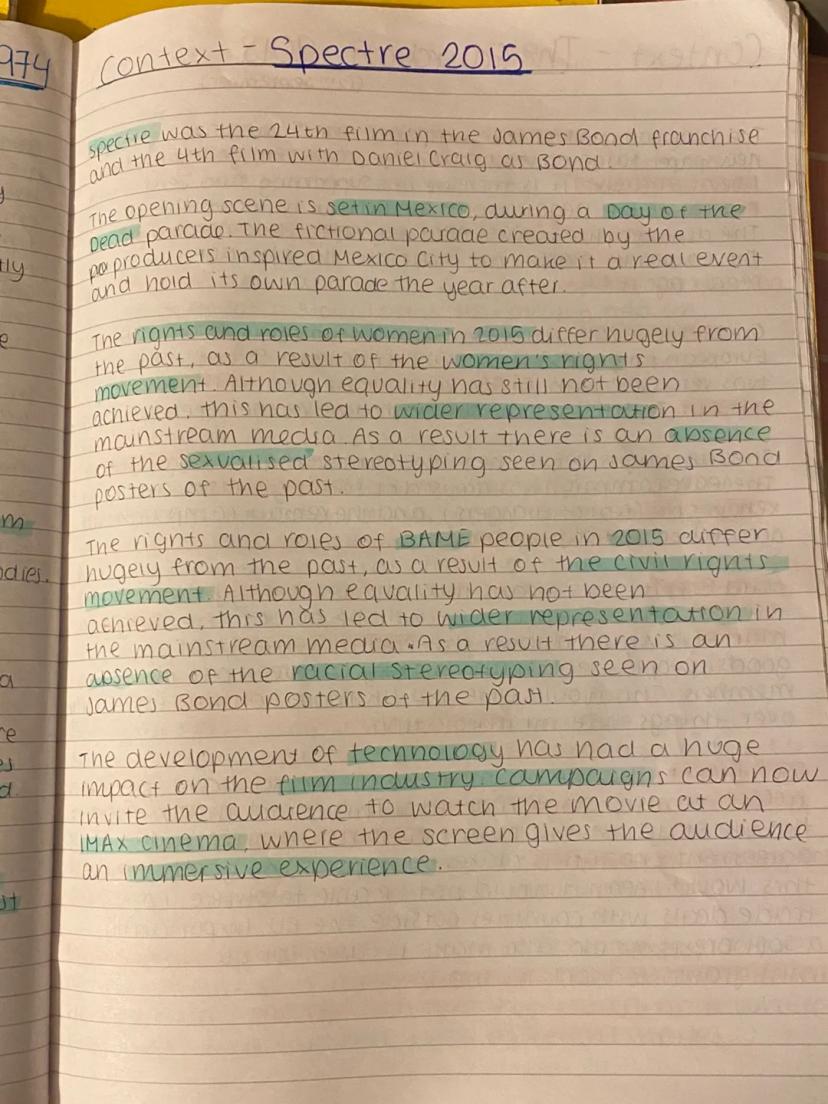 974
y
tly
e
m
odies.
a
re
es
d.
st
Context - Spectre 2015
Spectre was the 24th film in the James Bond franchise
and the 4th film with Daniel Craig as Bond.
The opening scene is set in Mexico, during a Day of the
Dead parade. The fictional parade created by the
producers inspired Mexico City to make it a real event
and hold its own parade the year after.
The rights and roles of women in 2015 differ hugely from
the past, as a result of the women's rights
movement. Although equality has still not been
achieved, this has led to wider representation in the
mainstream media. As a result there is an absence
of the sexualised stereotyping seen on James Bond
posters of the past.
The rights and roles of BAME people in 2015 differ
hugely from the past, as a result of the civil rights
movement. Although equality has not been
achieved, this has led to wider representation in
the mainstream media. As a result there is an
absence of the racial stereotyping seen on
James Bond posters of the past.
The development of technology has had a huge
impact on the film industry. Campaigns can now
invite the audience to watch the movie at an
IMAX cinema, where the screen gives the audience
an immersive experience.